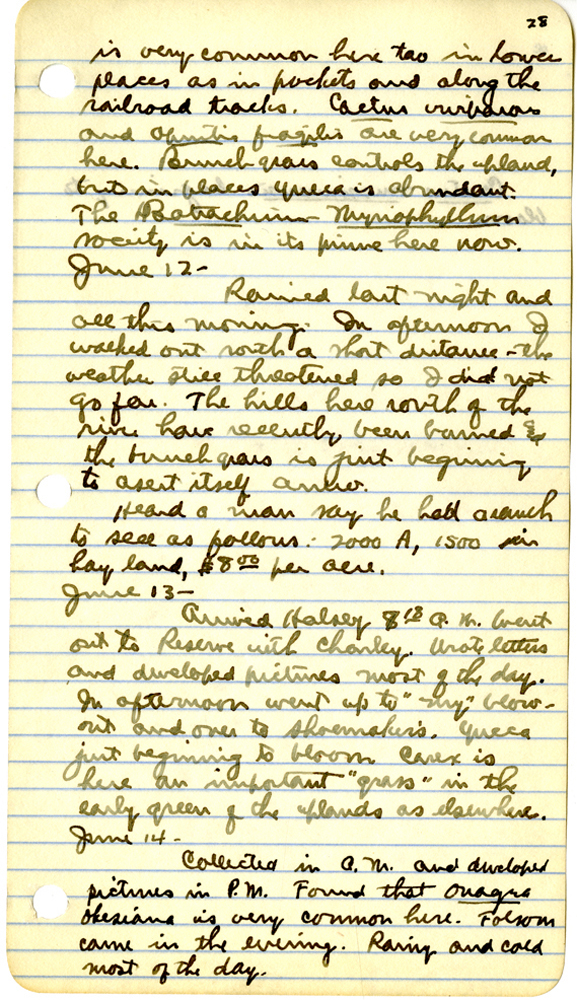 28
is very common here too in lower
places as in pockets and along the
railroad tracks. Cactus viviparous
and Opuntia fragilis are very common
here. Bunch grass controls the upland,
but in places yucca is abundant.
The Batrachium-Myriophyllum
society is in its prime here now.
June 12-
Rained last night and
all this morning. In afternoon I
walked out south a short distance - the
weather still threatened so I did not
go far. The hills here south of the
river have recently been burned &
the bunch grass is just beginning
to assert itself anew.
Heard a man say he had a ranch
to sell as follows: 2000 A, 1500 in
hay land, $8.00 per acre.
June 13-
Arrived Halsey 8 18 A.M. Went
out to Reserve with Charley. Wrote letters
and developed pictures most of the day.
In afternoon went up to "my" blow-
out and over to Shoemaker's. Yucca
just beginning to bloom. Carex is
here an important "grass" in the
early green of the uplands as elsewhere.
June 14-
Collected in A.M. and developed
pictures in P.M. Found that Onagra
is very common here. Folsom
came in the evening. Rainy and cold
most of the day.